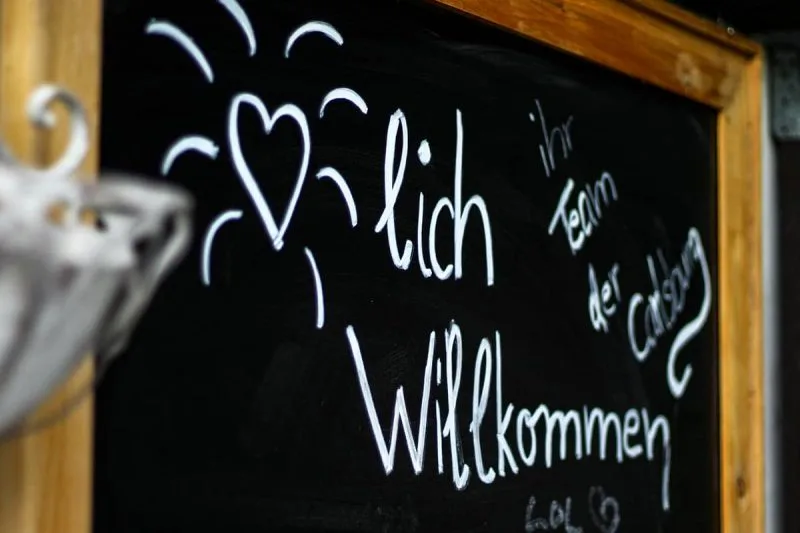 lich
Willkommen
ihr
Team
der
Carlsburg
LOL